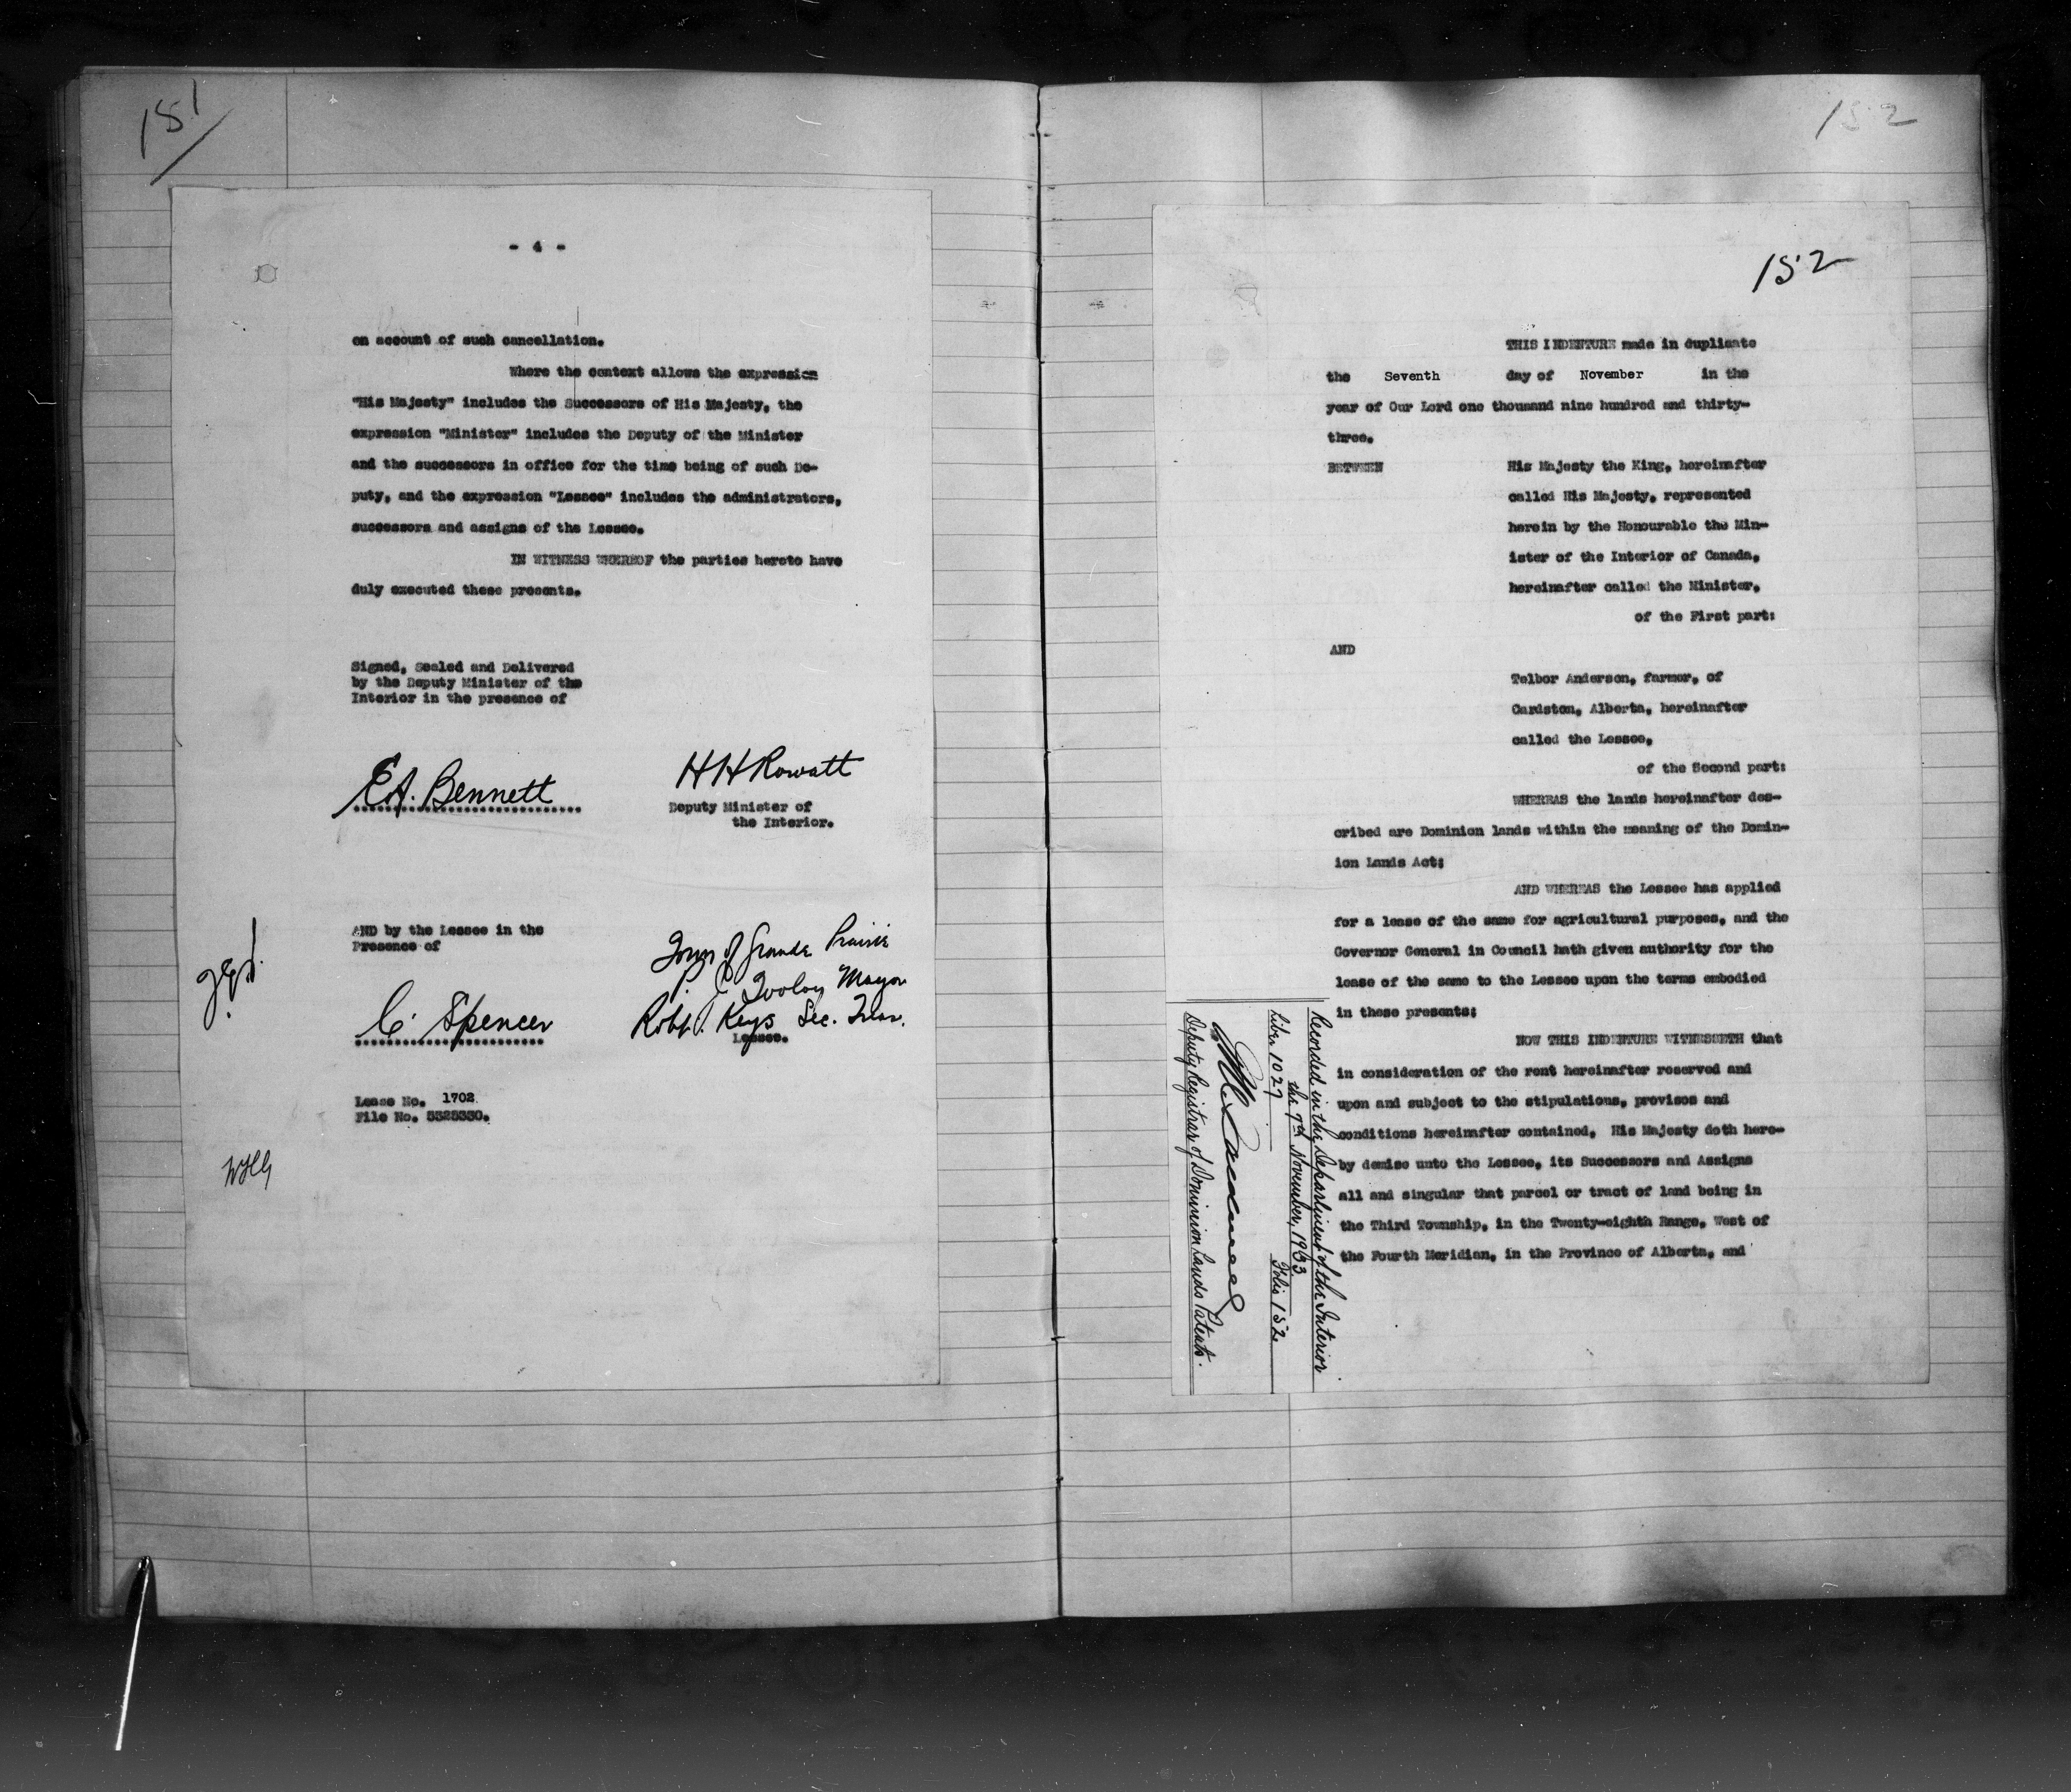 151
- 4 -
on account of such cancellation.
Where the context allows the expression
"His Majesty" includes the Successors of His Majesty, the
expression "Minister" includes the Deputy of the Minister
and the successors in office for the time being of such De-
puty, and the expression "Lessee" includes the administrators,
successors and assigns of the Lessee.
IN WITNESS WHEREOF the parties hereto have
duly executed these presents.
Signed, Sealed and Delivered
by the Deputy Minister of the
Interior in the presence of
E.A. Bennett
HH Rowatt
Deputy Minister of
the Interior.
AND by the Lessee in the
Presence of
Town of Grande Prairie
P. J. Tooley Mayor
C. Spencer
Robt. Keys Sec. Treas.
Lessee.
Lease No. 1702
File No. 5328330.
152
152
THIS INDENTURE made in duplicate
the Seventh day of November in the
year of Our Lord one thousand nine hundred and thirty-
three.
BETWEEN His Majesty the King, hereinafter
called His Majesty, represented
herein by the Honourable the Min-
ister of the Interior of Canada,
hereinafter called the Minister,
of the First part:
AND
Telbor Anderson, farmer, of
Cardston, Alberta, hereinafter
called the Lessee,
of the Second part:
WHEREAS the lands hereinafter des-
cribed are Dominion lands within the meaning of the Domin-
ion Lands Act:
AND WHEREAS the Lessee has applied
for a lease of the same for agricultural purposes, and the
Governor General in Council hath given authority for the
lease of the same to the Lessee upon the terms embodied
in these presents:
NOW THIS INDENTURE WITNESSETH that
in consideration of the rent hereinafter reserved and
upon and subject to the stipulations, provisos and
conditions hereinafter contained, His Majesty doth here-
by demise unto the Lessee, its Successors and Assigns
all and singular that parcel or tract of land being in
the Third Township, in the Twenty-eighth Range, West of
the Fourth Meridian, in the Province of Alberta, and
Recorded in the Department of the Interior
the 7th November, 1933
Liber 1027 Folio 152
Deputy Registrar of Dominion Lands Patents.